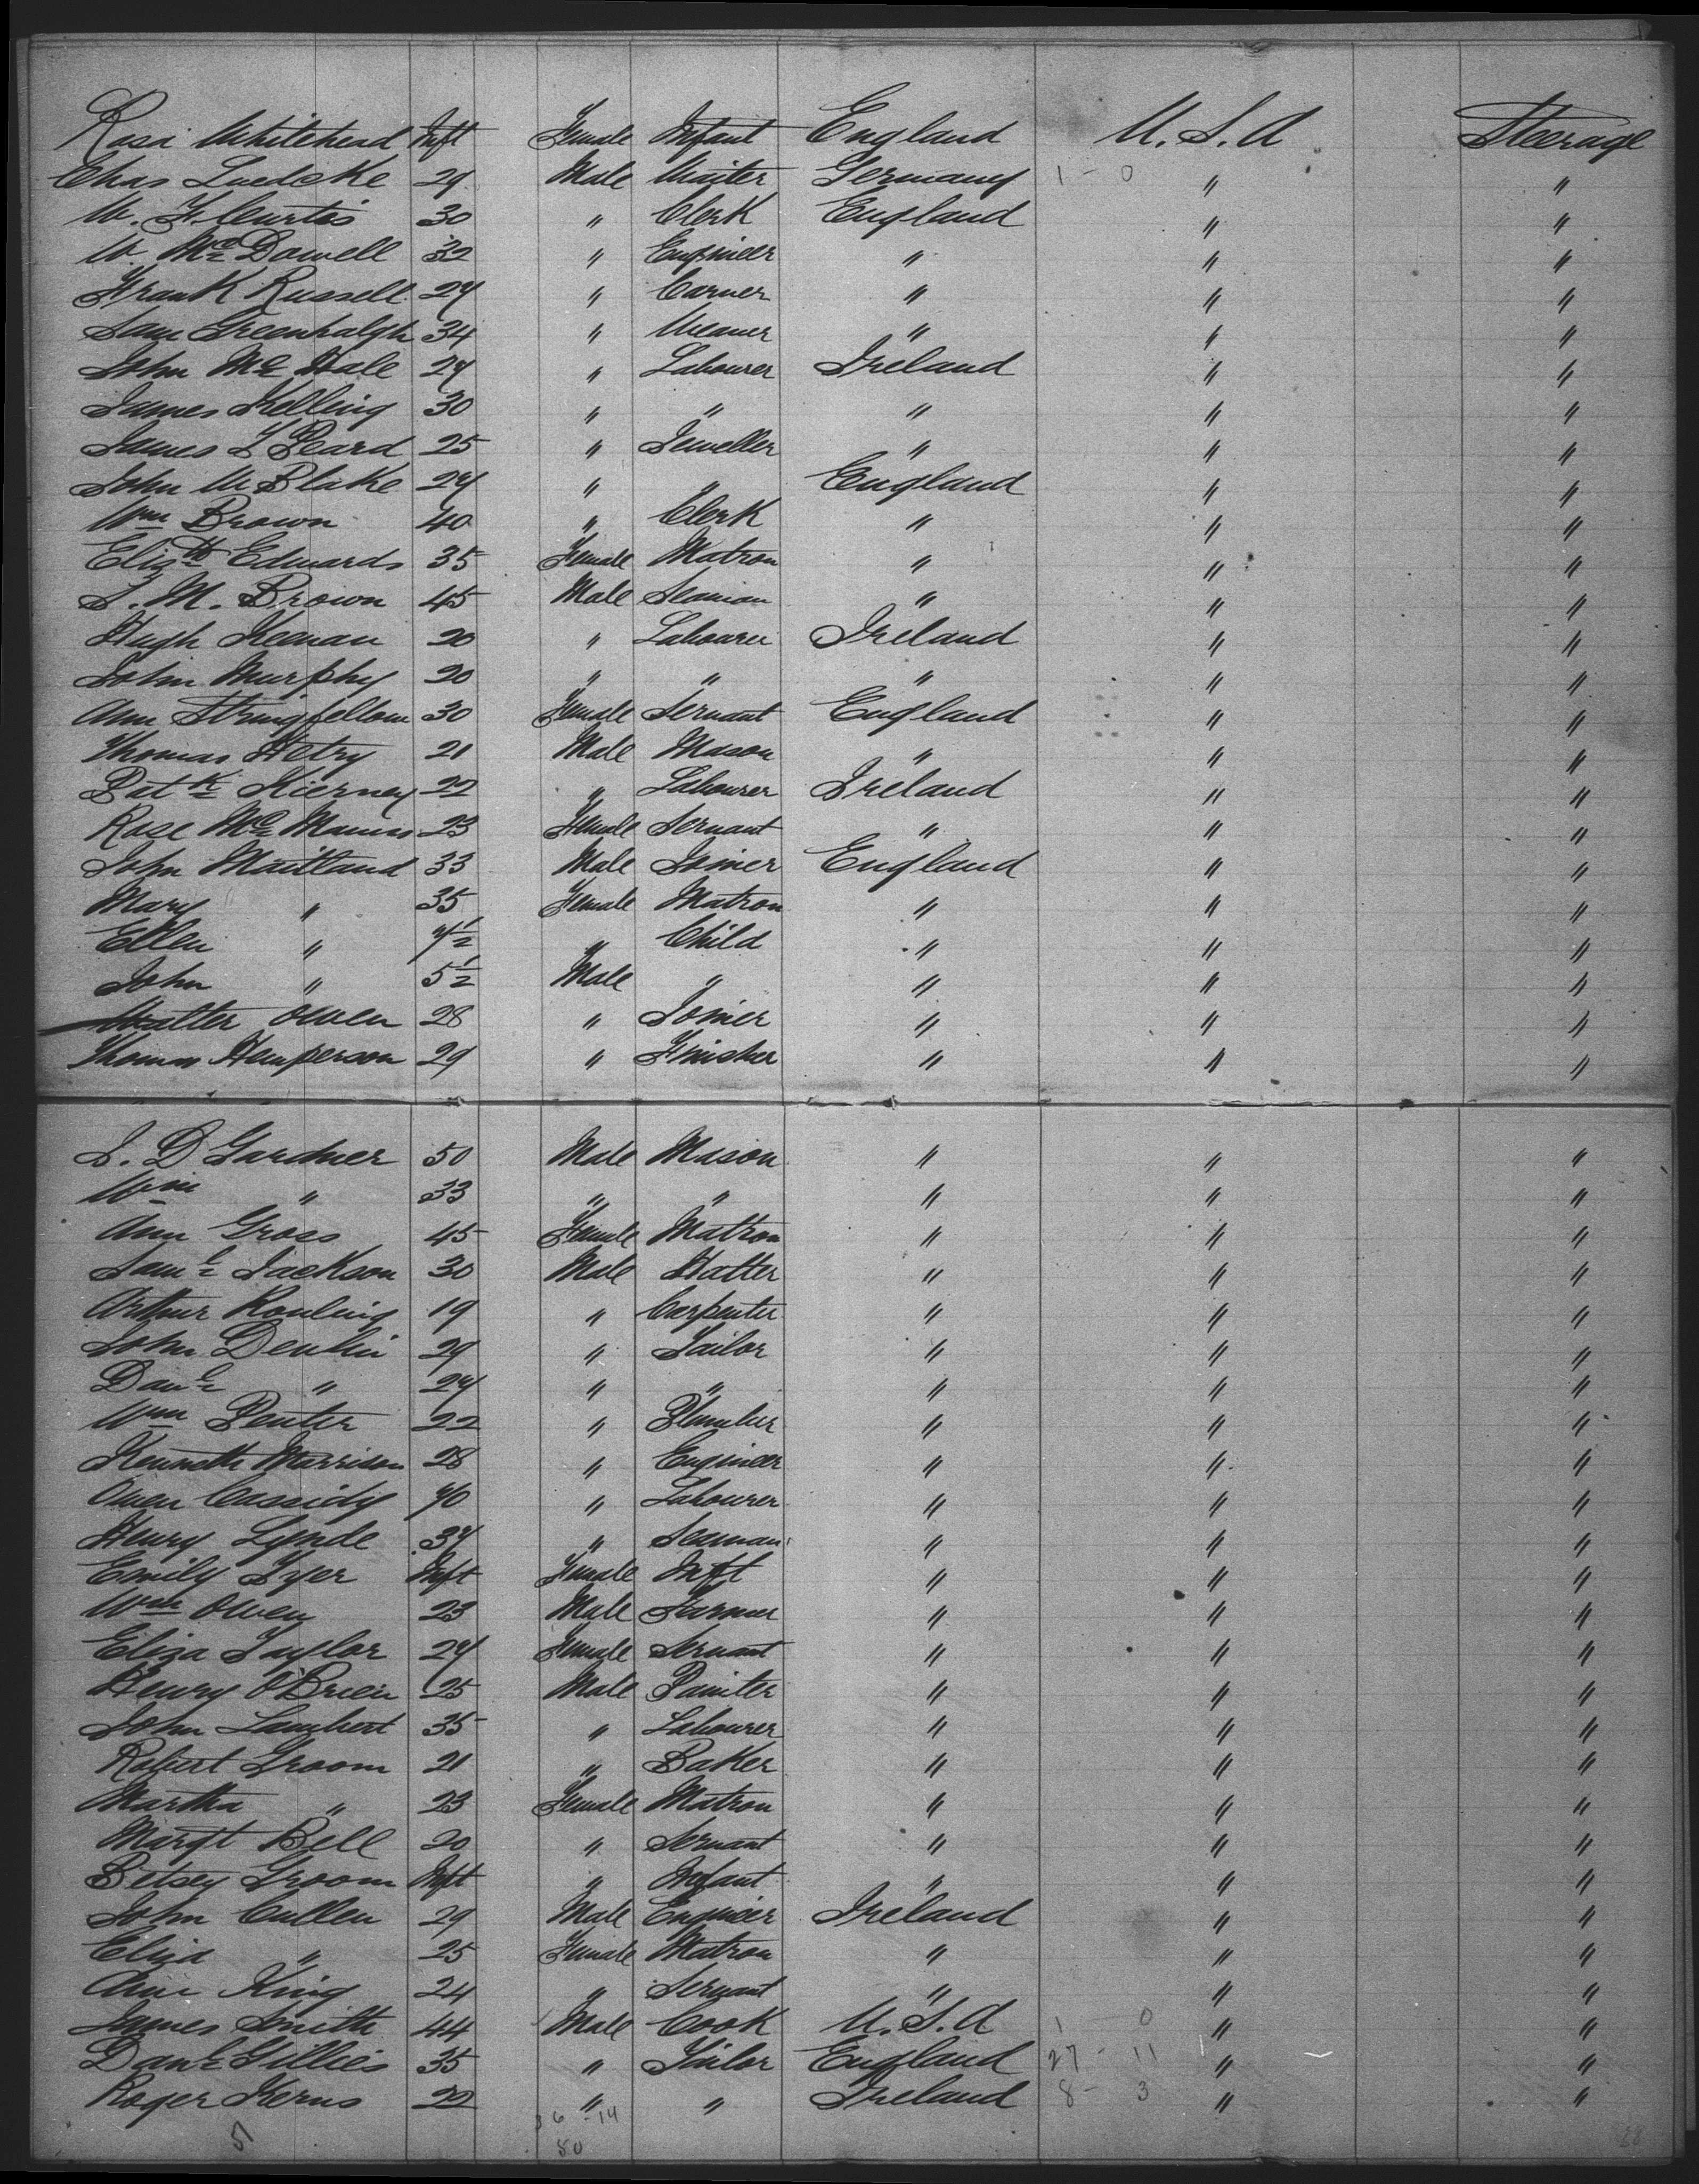 Rosa Whitehead Inft Female Infant England U.S.A Steerage
Chas Luedcke 29 Male Waiter Germany 1 - 0 " "
W. F. Curtis 30 " Clerk England " "
W. Mc Dowell 32 " Engineer " " "
Frank Russell 27 " Carver " " "
Sam Greenhalgh 34 " Weaver " " "
John Mc Hale 27 " Labourer Ireland " "
James Kelling 30 " " " " "
James L Peard 25 " Jeweller " " "
John W Blake 27 " " England " "
Wm Brown 40 " Clerk " " "
Elizth Edwards 35 Female Matron " " "
S. M. Brown 45 Male Seaman " " "
Hugh Keenan 20 " Labourer Ireland " "
John Murphy 20 " " " " "
Ann Stringfellow 30 Female Servant England " "
Thomas Hetry 21 Male Mason " " "
Patk Kierney 22 " Labourer Ireland " "
Rose Mc Manus 23 Female Servant " " "
John Maitland 33 Male Joiner England " "
Mary " 35 Female Matron " " "
Ellen " 7½ " Child " " "
John " 5½ Male " " " "
Walter Owen 28 " Joiner " " "
Thomas Hemperson 29 " Finisher " " "
S. D Gardner 50 Male Mason " " "
Wm " 33 " " " " "
Ann Gross 45 Female Matron " " "
Saml Jackson 30 Male Hatter " " "
Arthur Rouling 19 " Carpenter " " "
John Denlin 29 " Tailor " " "
Danl " 27 " " " " "
Wm Penter 22 " Plumber " " "
Kenneth Morrison 28 " Engineer " " "
Owen Cassidy 70 " Labourer " " "
Henry Lynde 37 " Seaman " " "
Emily Tyer Inft Female Inft " " "
Wm Owen 23 Male Farmer " " "
Eliza Taylor 27 Female Servant " " "
Henry O'Brien 25 Male Painter " " "
John Lambert 35 " Labourer " " "
Robert Groom 21 " Baker " " "
Martha " 23 Female Matron " " "
Margt Bell 20 " Servant " " "
Betsey Groom Inft " Infant " " "
John Cullen 29 Male Engineer Ireland " "
Eliza " 25 Female Matron " " "
Ann King 24 " Servant " " "
James Smith 44 Male Cook U.S.A 1 0 " "
Danl Gillies 35 " Tailor England 27 - 11 " "
Roger Kerns 22 " " Ireland 8 - 3 " "
51 36 - 14
50